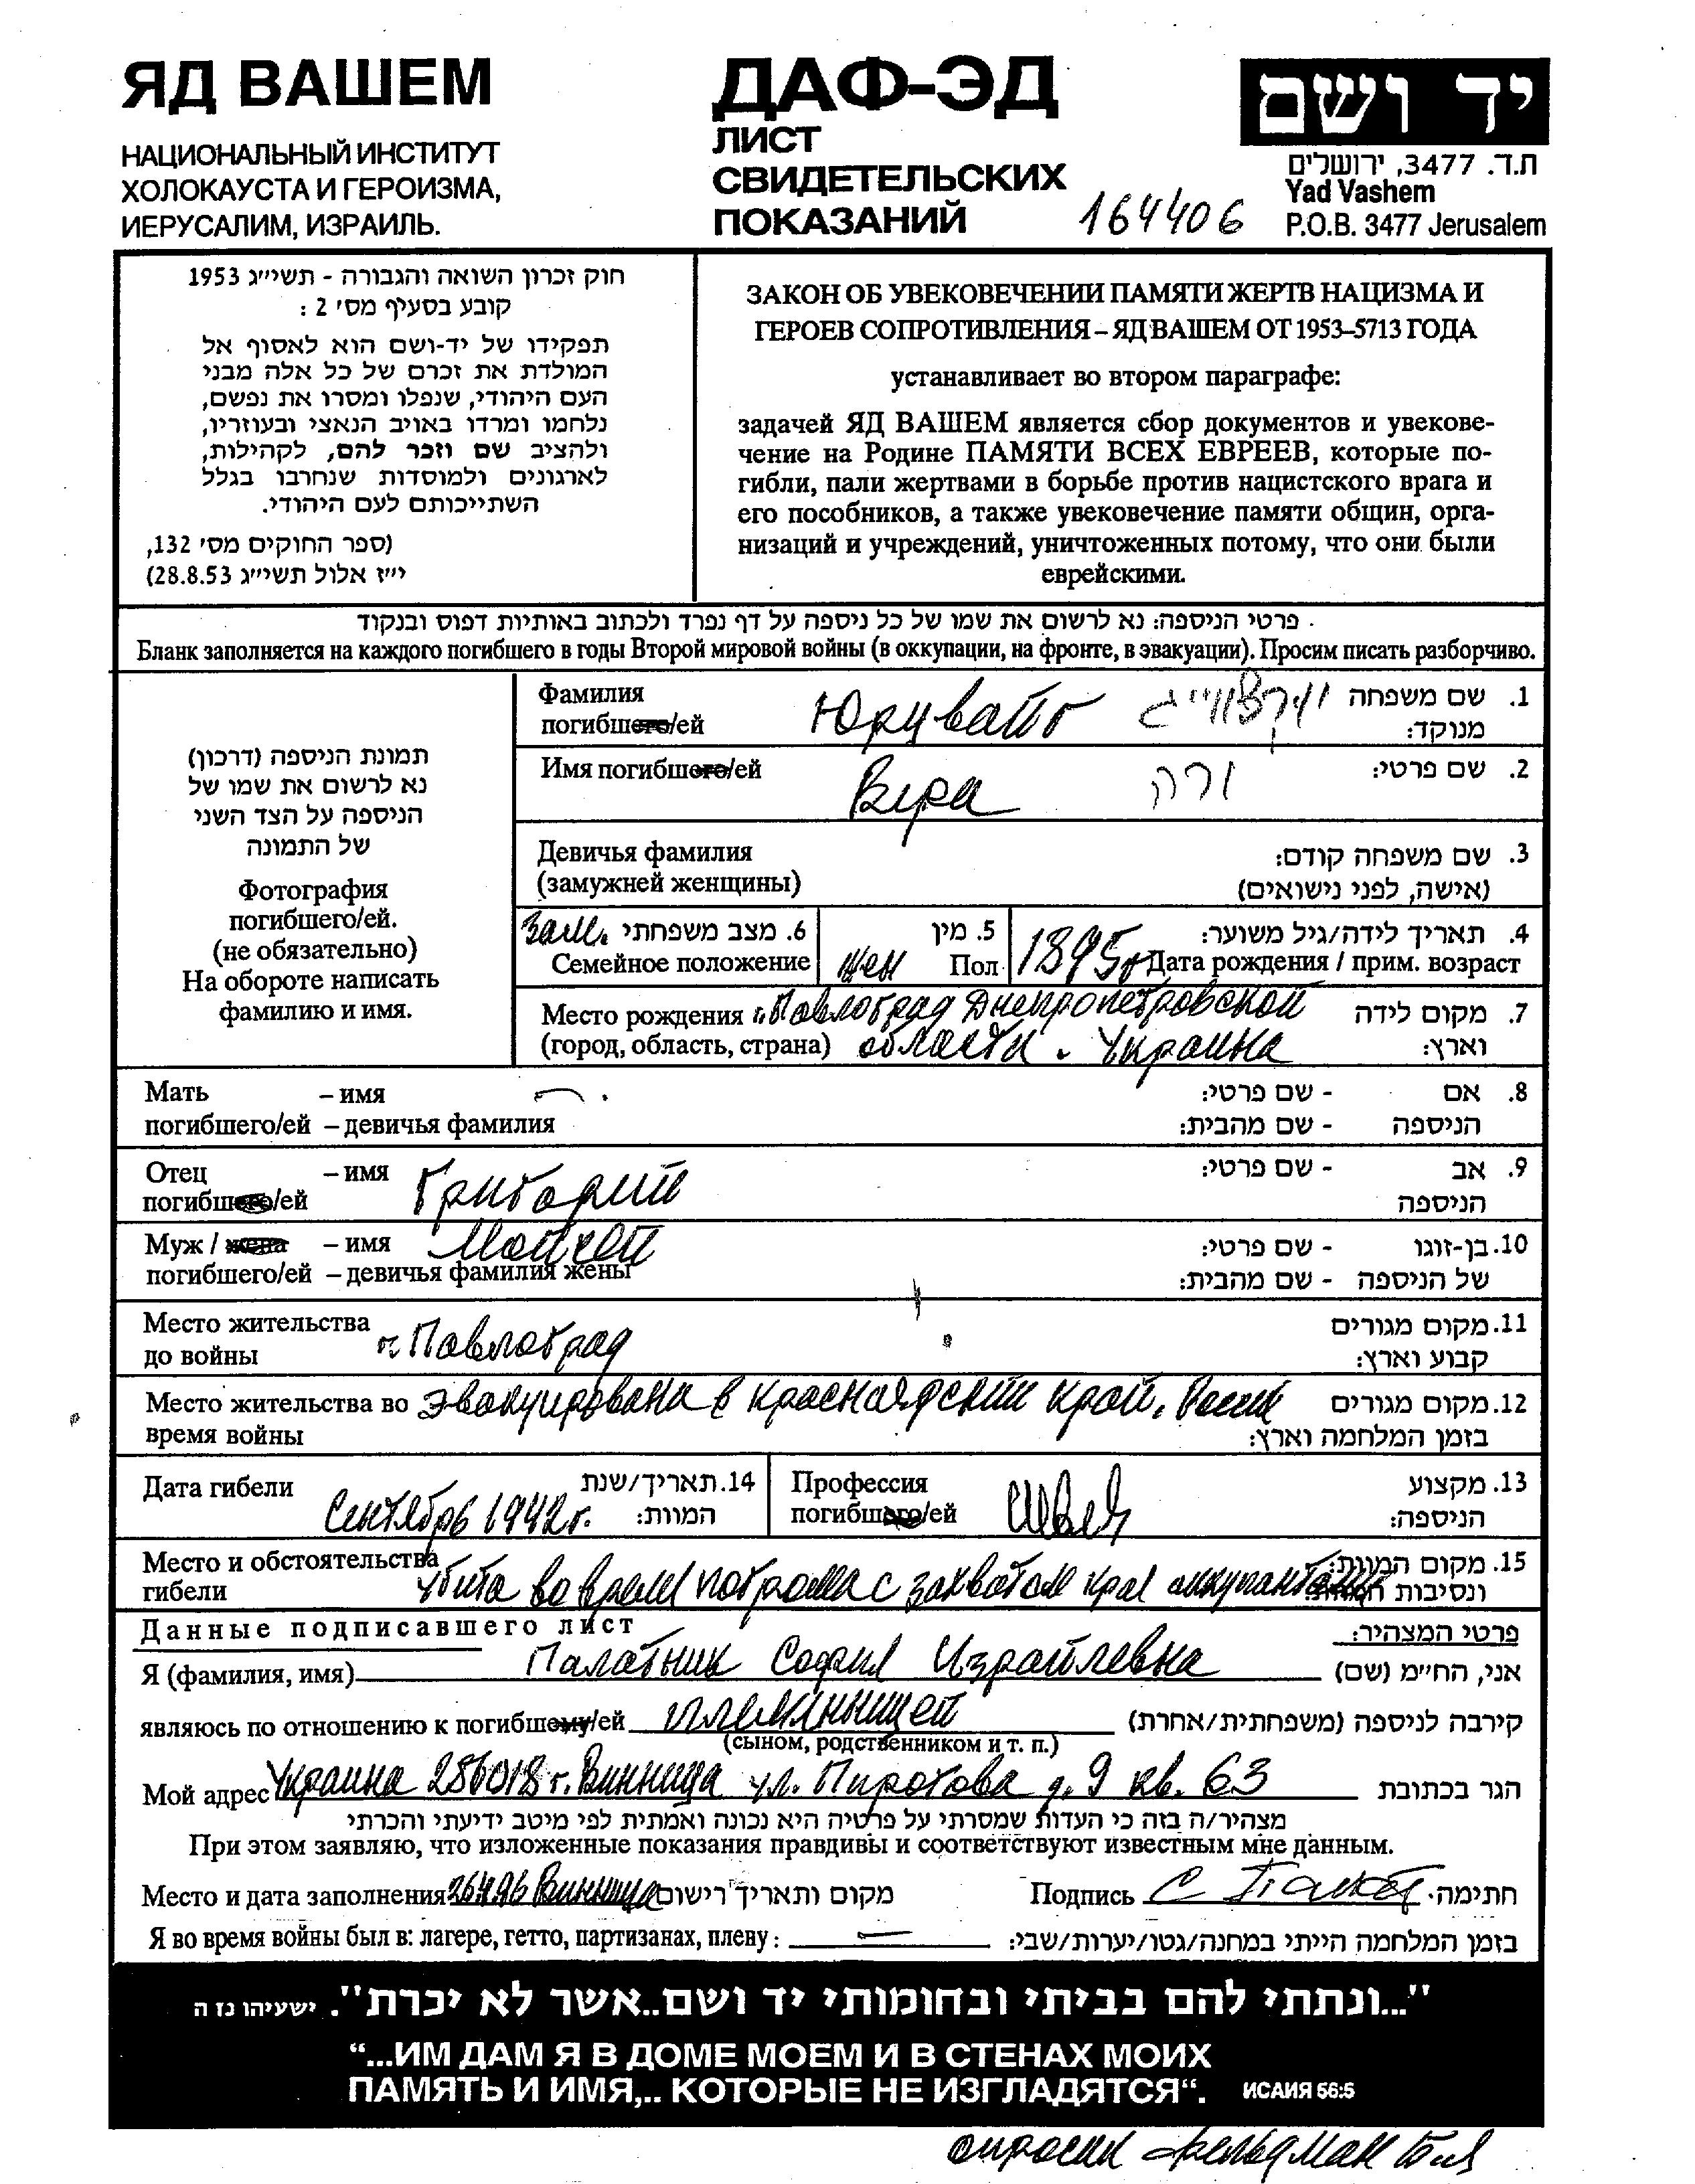 ЯД ВАШЕМ
НАЦИОНАЛЬНЫЙ ИНСТИТУТ
ХОЛОКАУСТА И ГЕРОИЗМА,
ИЕРУСАЛИМ, ИЗРАИЛЬ.
ДАФ-ЭД
ЛИСТ
СВИДЕТЕЛЬСКИХ
ПОКАЗАНИЙ
164406
יד ושם
ת.ד. 3477, ירושלים
Yad Vashem
P.O.B. 3477 Jerusalem
חוק זכרון השואה והגבורה - תשי״ג 1953
קובע בסעיף מס׳ 2 :
תפקידו של יד-ושם הוא לאסוף אל
המולדת את זכרם של כל אלה מבני
העם היהודי, שנפלו ומסרו את נפשם,
נלחמו ומרדו באויב הנאצי ובעוזריו,
ולהציב שם וזכר להם, לקהילות,
לארגונים ולמוסדות שנחרבו בגלל
השתייכותם לעם היהודי.
(ספר החוקים מס׳ 132,
י״ז אלול תשי״ג 28.8.53)
ЗАКОН ОБ УВЕКОВЕЧЕНИИ ПАМЯТИ ЖЕРТВ НАЦИЗМА И
ГЕРОЕВ СОПРОТИВЛЕНИЯ – ЯД ВАШЕМ ОТ 1953–5713 ГОДА
устанавливает во втором параграфе:
задачей ЯД ВАШЕМ является сбор документов и увекове-
чение на Родине ПАМЯТИ ВСЕХ ЕВРЕЕВ, которые по-
гибли, пали жертвами в борьбе против нацистского врага и
его пособников, а также увековечение памяти общин, орга-
низаций и учреждений, уничтоженных потому, что они были
еврейскими.
פרטי הניספה: נא לרשום את שמו של כל ניספה על דף נפרד ולכתוב באותיות דפוס ובנקוד
Бланк заполняется на каждого погибшего в годы Второй мировой войны (в оккупации, на фронте, в эвакуации). Просим писать разборчиво.
תמונת הניספה (דרכון)
נא לרשום את שמו של
הניספה על הצד השני
של התמונה
Фотография
погибшего/ей.
(не обязательно)
На обороте написать
фамилию и имя.
Фамилия 1. שם משפחה
погибшего/ей מנוקד:
Имя погибшего/ей Вера ורה 2. שם פרטי:
Девичья фамилия 3. שם משפחה קודם:
(замужней женщины) (אישה, לפני נישואים)
Зам. 6. מצב משפחתי 5. מין 4. תאריך לידה/גיל משוער:
Семейное положение жен Пол 1895г Дата рождения / прим. возраст
Место рождения г. Павлоград Днепропетровской 7. מקום לידה
(город, область, страна) области. Украина וארץ:
Мать – имя - שם פרטי: 8. אם
погибшего/ей – девичья фамилия - שם מהבית: הניספה
Отец – имя Григорий - שם פרטי: 9. אב
погибшего/ей הניספה
Муж / жена – имя Мойсей - שם פרטי: 10. בן-זוגו
погибшего/ей – девичья фамилия жены - שם מהבית: של הניספה
Место жительства г. Павлоград 11. מקום מגורים
до войны קבוע וארץ:
Место жительства во эвакуирована в красноярский край. 12. מקום מגורים
время войны בזמן המלחמה וארץ:
Дата гибели Сентябрь 1942г. 14. תאריך/שנת המוות:
Профессия 13. מקצוע
погибшего/ей Швея הניספה:
Место и обстоятельства 15. מקום המוות:
гибели убита во время погрома с захватом края оккупантами ונסיבות המוות:
Данные подписавшего лист פרטי המצהיר:
Я (фамилия, имя) Палатник Софья Израйлевна אני, החי״מ (שם)
являюсь по отношению к погибшему/ей племянницей קירבה לניספה (משפחתית/אחרת)
(сыном, родственником и т. п.)
Мой адрес Украина 286018 г. Винница ул. Пирогова д. 9 кв. 63 הגר בכתובת
מצהיר/ה בזה כי העדות שמסרתי על פרטיה היא נכונה ואמתית לפי מיטב ידיעתי והכרתי
При этом заявляю, что изложенные показания правдивы и соответствуют известным мне данным.
Место и дата заполнения Винница מקום ותאריך רישום Подпись חתימה
Я во время войны был в: лагере, гетто, партизанах, плену: בזמן המלחמה הייתי במחנה/גטו/יערות/שבי:
"...ונתתי להם בביתי ובחומותי יד ושם..אשר לא יכרת". ישעיהו נז ה
“...ИМ ДАМ Я В ДОМЕ МОЕМ И В СТЕНАХ МОИХ
ПАМЯТЬ И ИМЯ,.. КОТОРЫЕ НЕ ИЗГЛАДЯТСЯ“. ИСАИЯ 56:5